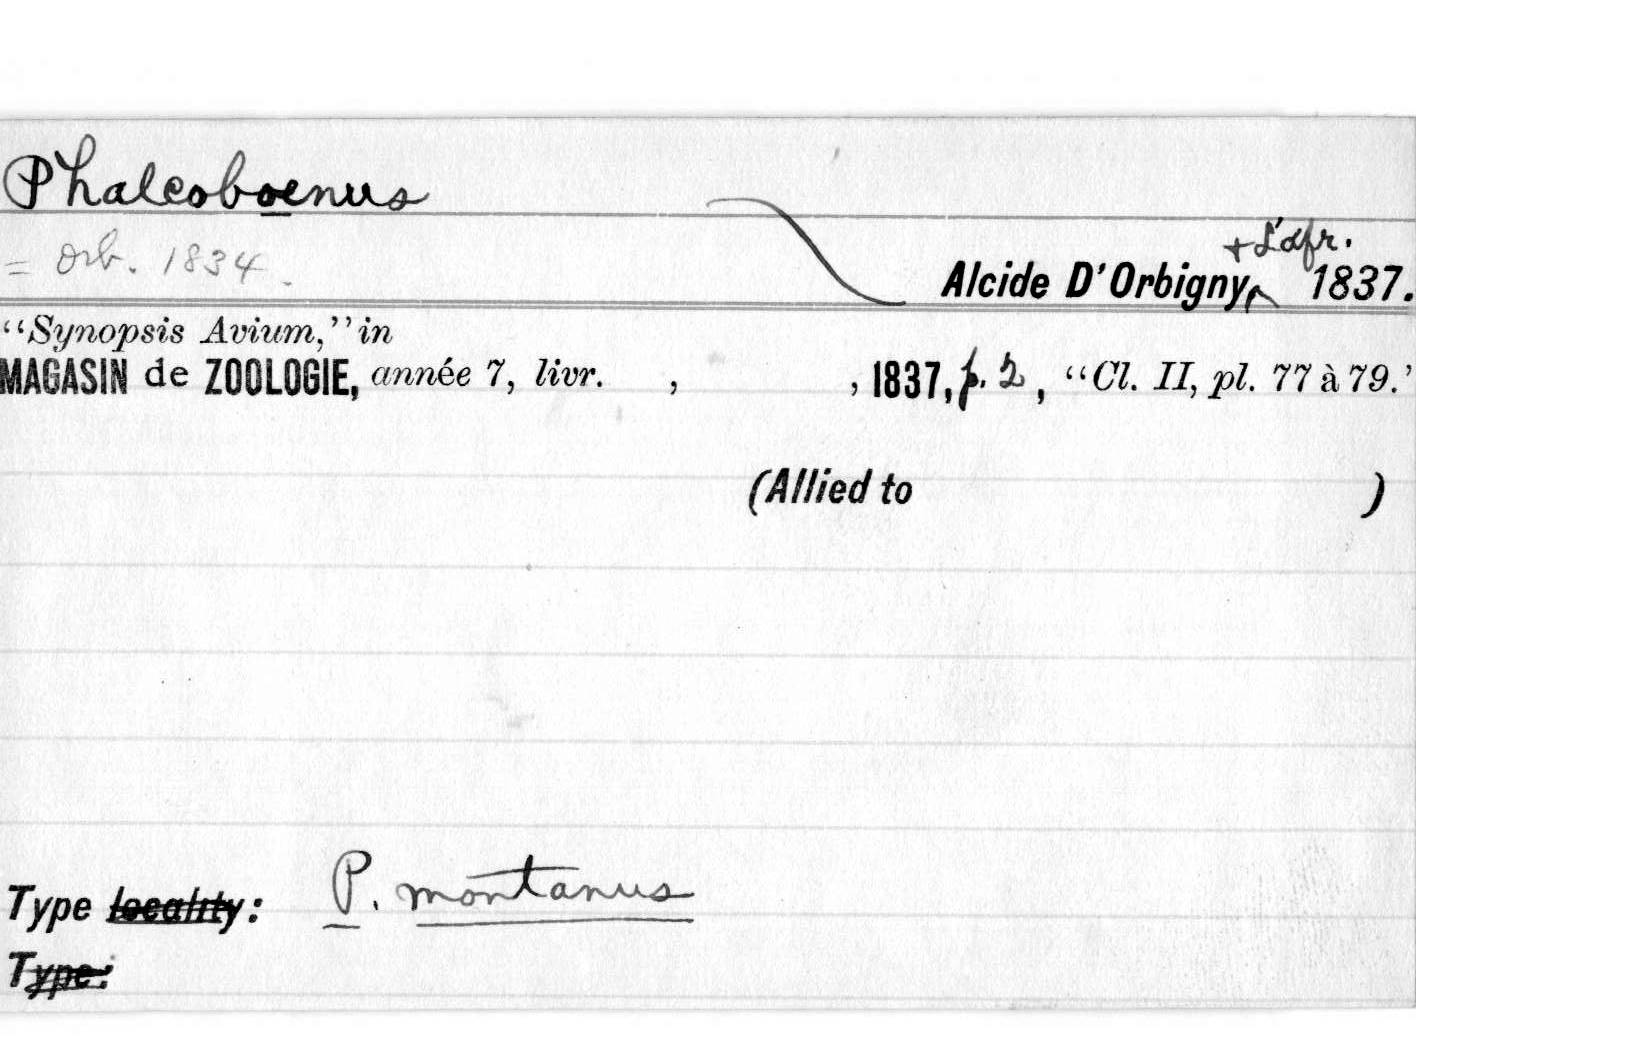 Phalcoboenus
= Orb. 1834.
+ Lafr.
Alcide D'Orbigny, 1837.
“Synopsis Avium,” in
MAGASIN de ZOOLOGIE, année 7, livr. , , 1837, p. 2 , “Cl. II, pl. 77 à 79.’
(Allied to )
Type locality: P. montanus
Type: